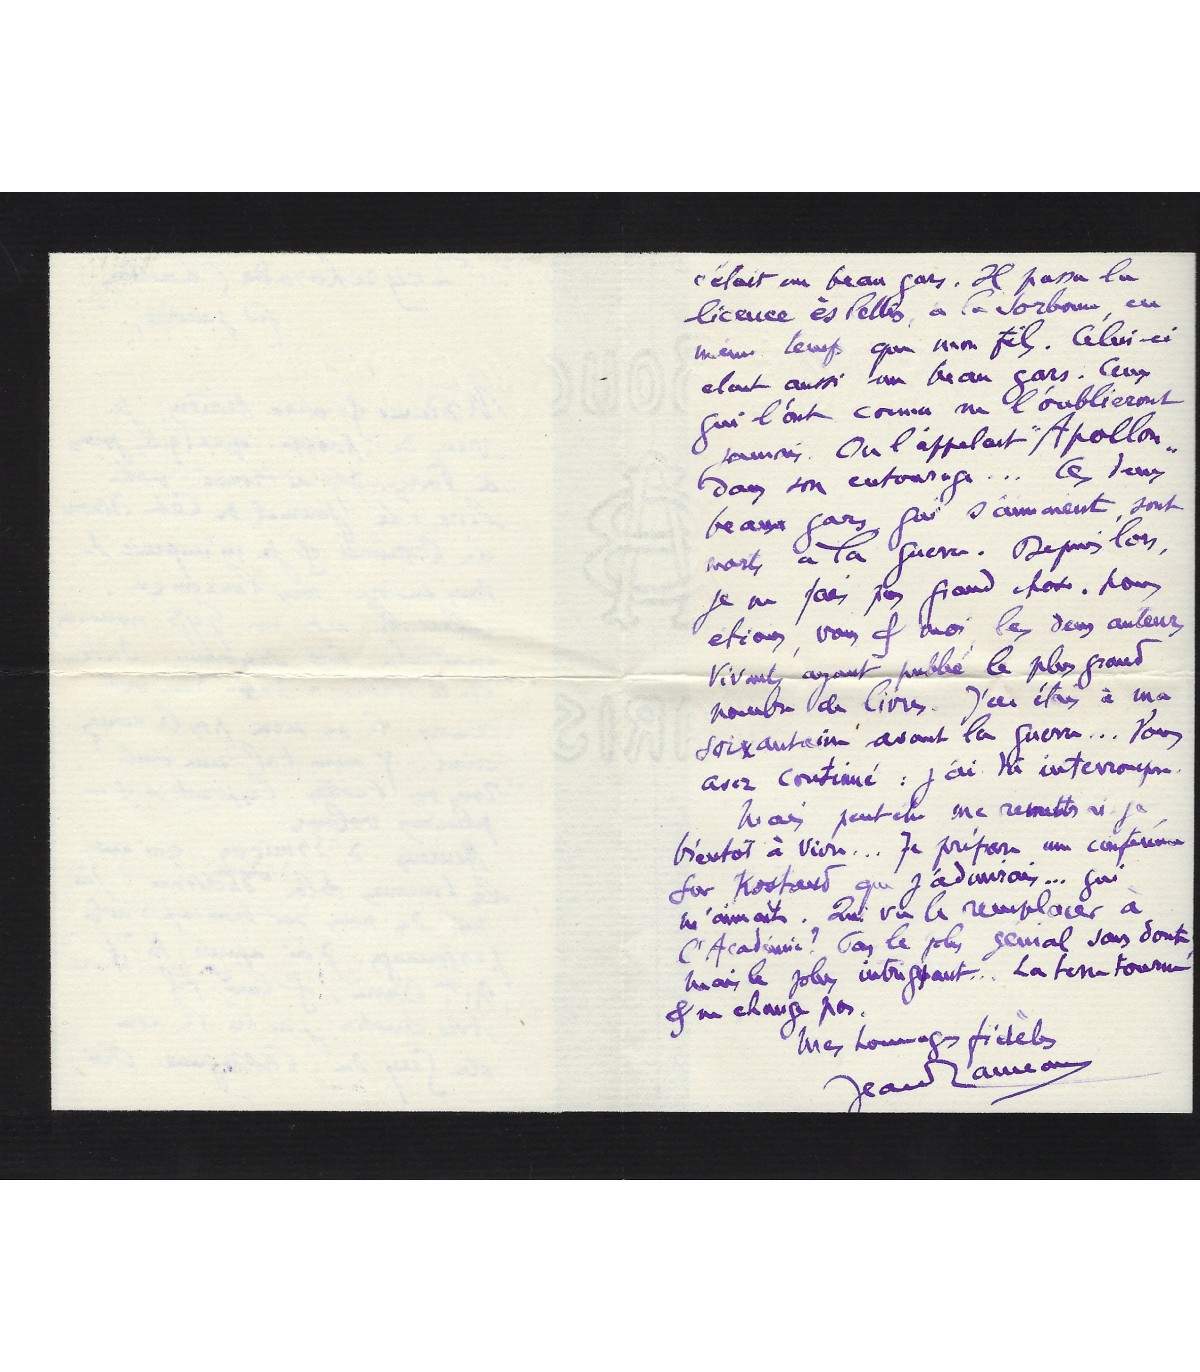 c'était un beau gars. Il passa la
licence ès lettres, à la Sorbonne, en
même temps que mon fils. Celui-ci
etait aussi un beau gars. Ceux
qui l'ont connu ne l'oublieront
jamais. On l'appelait "Apollon"
dans son entourage... Ces deux
beaux gars, qui s'aimaient, sont
morts à la guerre. Depuis lors,
je ne fais pas grand chose. Nous
etions, vous & moi, les deux auteurs
vivants ayant publié le plus grand
nombre de livres. J'en étais à ma
soixantaine avant la guerre... Vous
avez continué : j'ai interrompu.
Mais peut-être me remettrai-je
bientôt à vivre... Je prépare une conférence
sur Rostand que j'admirais... qui
m'aimait. Qui va le remplacer à
l'Académie? Pas le plus génial sans doute
mais le plus intrigant... La terre tourne
& ne change pas.
Mes hommages fidèles
Jean Rameau